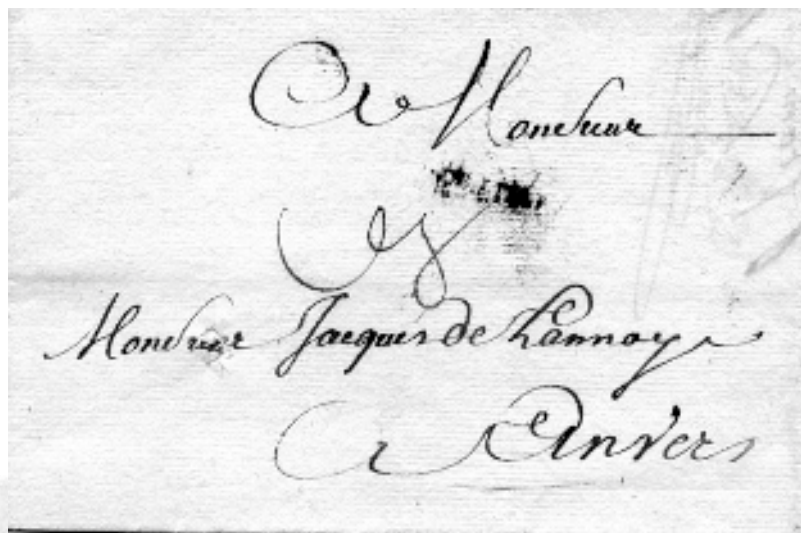 A Monsieur
Monsieur Jacques de Lannoy
A Anvers